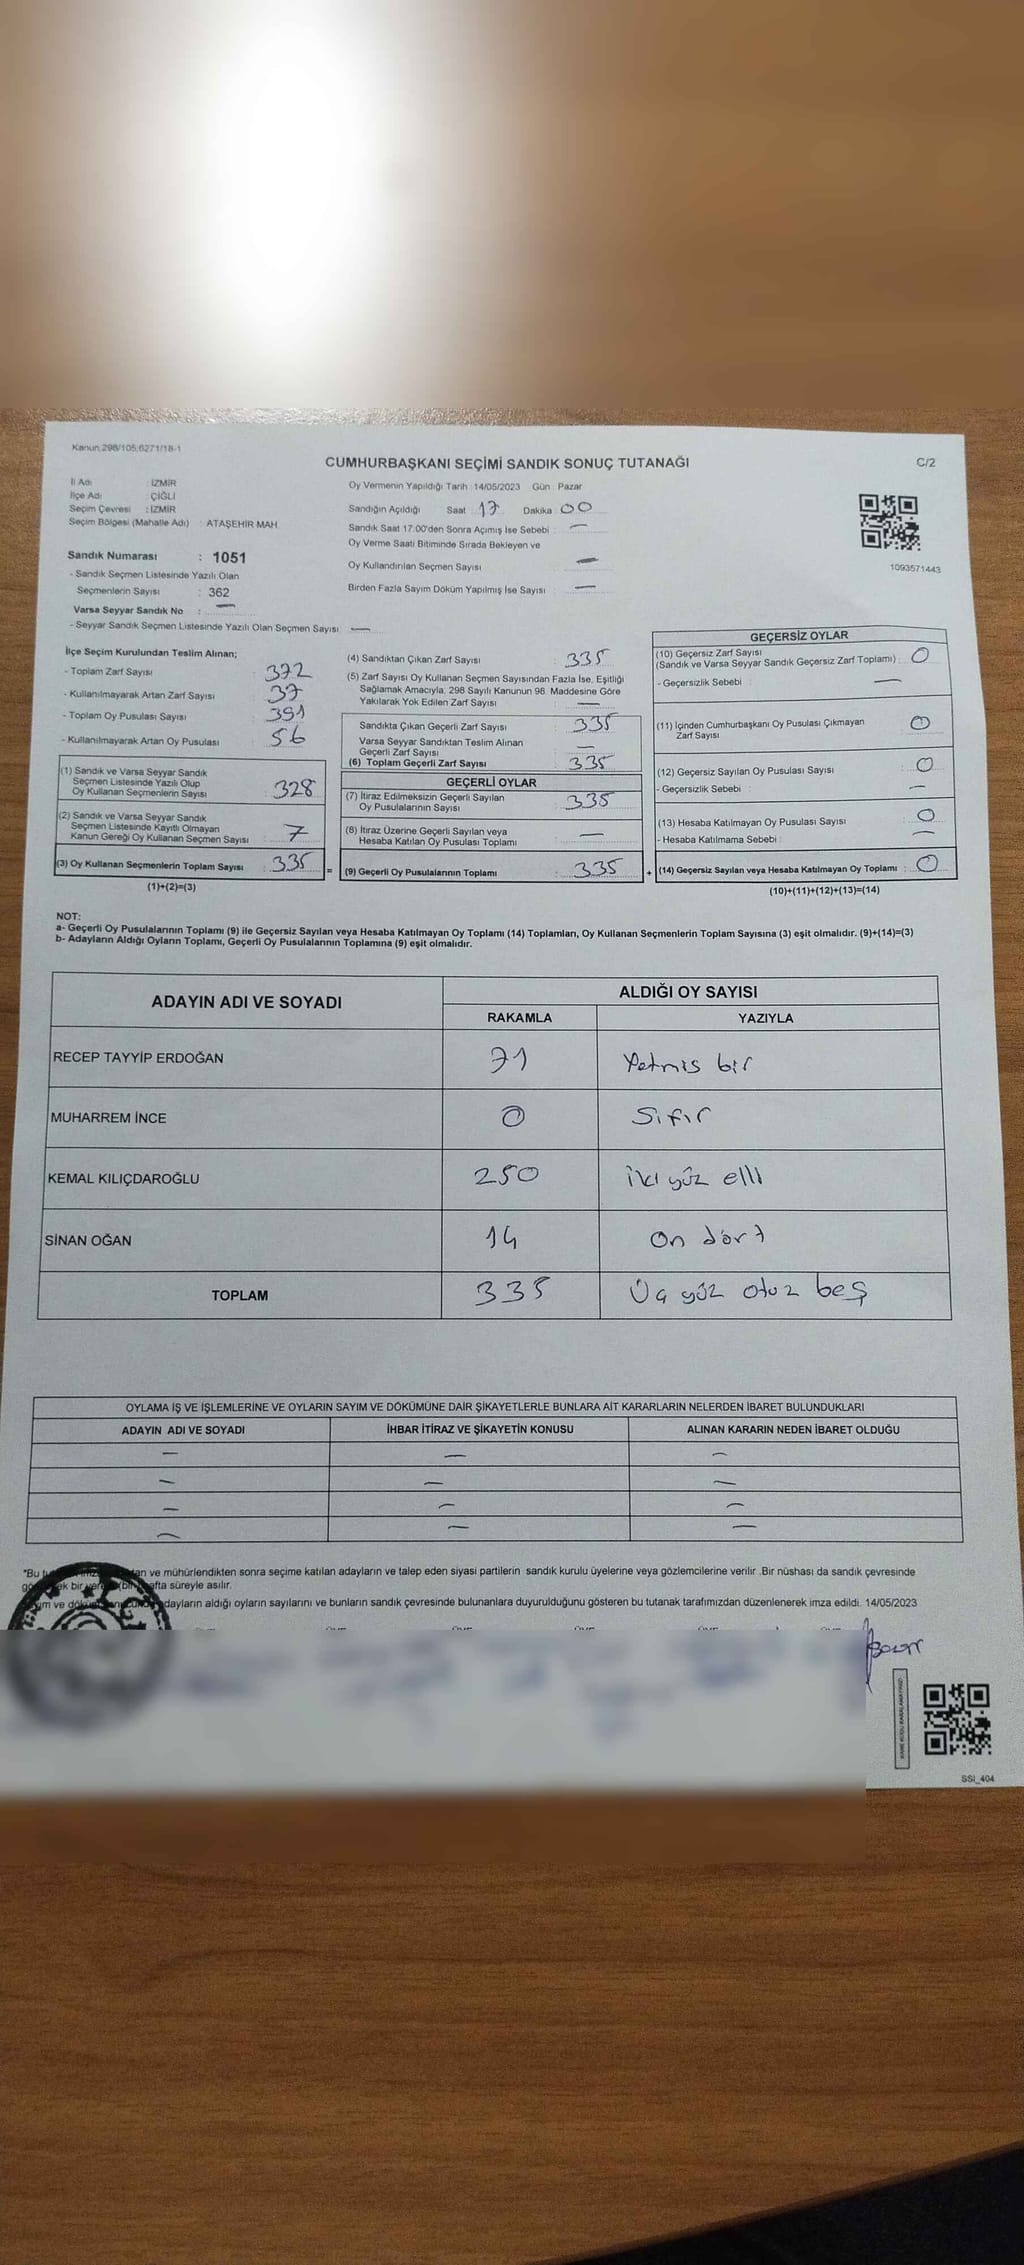 Kanun,298/105,6271/18-1
CUMHURBAŞKANI SEÇİMİ SANDIK SONUÇ TUTANAĞI
C/2
İl Adı : İZMİR
İlçe Adı : ÇİĞLİ
Seçim Çevresi : İZMİR
Seçim Bölgesi (Mahalle Adı) : ATAŞEHİR MAH.
Oy Vermenin Yapıldığı Tarih : 14/05/2023 Gün : Pazar
Sandığın Açıldığı Saat 17 Dakika 00
Sandık Saat 17.00'den Sonra Açımış İse Sebebi : —
Oy Verme Saati Bitiminde Sırada Bekleyen ve
Oy Kullandırılan Seçmen Sayısı —
Birden Fazla Sayım Döküm Yapılmış İse Sayısı : —
1093571443
Sandık Numarası : 1051
- Sandık Seçmen Listesinde Yazılı Olan
Seçmenlerin Sayısı : 362
Varsa Seyyar Sandık No : —
- Seyyar Sandık Seçmen Listesinde Yazılı Olan Seçmen Sayısı —
İlçe Seçim Kurulundan Teslim Alınan;
- Toplam Zarf Sayısı 372
- Kullanılmayarak Artan Zarf Sayısı 37
- Toplam Oy Pusulası Sayısı 391
- Kullanılmayarak Artan Oy Pusulası 56
(1) Sandık ve Varsa Seyyar Sandık
Seçmen Listesinde Yazılı Olup
Oy Kullanan Seçmenlerin Sayısı 328
(2) Sandık ve Varsa Seyyar Sandık
Seçmen Listesinde Kayıtlı Olmayan
Kanun Gereği Oy Kullanan Seçmen Sayısı 7
(3) Oy Kullanan Seçmenlerin Toplam Sayısı 335
(1)+(2)=(3)
(4) Sandıktan Çıkan Zarf Sayısı : 335
(5) Zarf Sayısı Oy Kullanan Seçmen Sayısından Fazla İse, Eşitliği
Sağlamak Amacıyla; 298 Sayılı Kanunun 98. Maddesine Göre
Yakılarak Yok Edilen Zarf Sayısı —
Sandıkta Çıkan Geçerli Zarf Sayısı 335
Varsa Seyyar Sandıktan Teslim Alınan
Geçerli Zarf Sayısı —
(6) Toplam Geçerli Zarf Sayısı 335
GEÇERLİ OYLAR
(7) İtiraz Edilmeksizin Geçerli Sayılan
Oy Pusulalarının Sayısı 335
(8) İtiraz Üzerine Geçerli Sayılan veya
Hesaba Katılan Oy Pusulası Toplamı —
= (9) Geçerli Oy Pusulalarının Toplamı 335
GEÇERSİZ OYLAR
(10) Geçersiz Zarf Sayısı
(Sandık ve Varsa Seyyar Sandık Geçersiz Zarf Toplamı) : 0
- Geçersizlik Sebebi : —
(11) İçinden Cumhurbaşkanı Oy Pusulası Çıkmayan
Zarf Sayısı 0
(12) Geçersiz Sayılan Oy Pusulası Sayısı : 0
- Geçersizlik Sebebi : —
(13) Hesaba Katılmayan Oy Pusulası Sayısı : 0
- Hesaba Katılmama Sebebi : —
+ (14) Geçersiz Sayılan veya Hesaba Katılmayan Oy Toplamı : 0
(10)+(11)+(12)+(13)=(14)
NOT:
a- Geçerli Oy Pusulalarının Toplamı (9) ile Geçersiz Sayılan veya Hesaba Katılmayan Oy Toplamı (14) Toplamları, Oy Kullanan Seçmenlerin Toplam Sayısına (3) eşit olmalıdır. (9)+(14)=(3)
b- Adayların Aldığı Oyların Toplamı, Geçerli Oy Pusulalarının Toplamına (9) eşit olmalıdır.
ADAYIN ADI VE SOYADI ALDIĞI OY SAYISI
RAKAMLA YAZIYLA
RECEP TAYYİP ERDOĞAN 71 Yetmis bir
MUHARREM İNCE 0 Sıfır
KEMAL KILIÇDAROĞLU 250 iki yüz elli
SİNAN OĞAN 14 On dört
TOPLAM 335 Üç yüz otuz beş
OYLAMA İŞ VE İŞLEMLERİNE VE OYLARIN SAYIM VE DÖKÜMÜNE DAİR ŞİKAYETLERLE BUNLARA AİT KARARLARIN NELERDEN İBARET BULUNDUKLARI
ADAYIN ADI VE SOYADI İHBAR İTİRAZ VE ŞİKAYETİN KONUSU ALINAN KARARIN NEDEN İBARET OLDUĞU
— — —
— — —
— — —
— — —
*Bu ve mühürlendikten sonra seçime katılan adayların ve talep eden siyasi partilerin sandık kurulu üyelerine veya gözlemcilerine verilir .Bir nüshası da sandık çevresinde
bir hafta süreyle asılır.
ve adayların aldığı oyların sayılarını ve bunların sandık çevresinde bulunanlara duyurulduğunu gösteren bu tutanak tarafımızdan düzenlenerek imza edildi. 14/05/2023
SSI_404